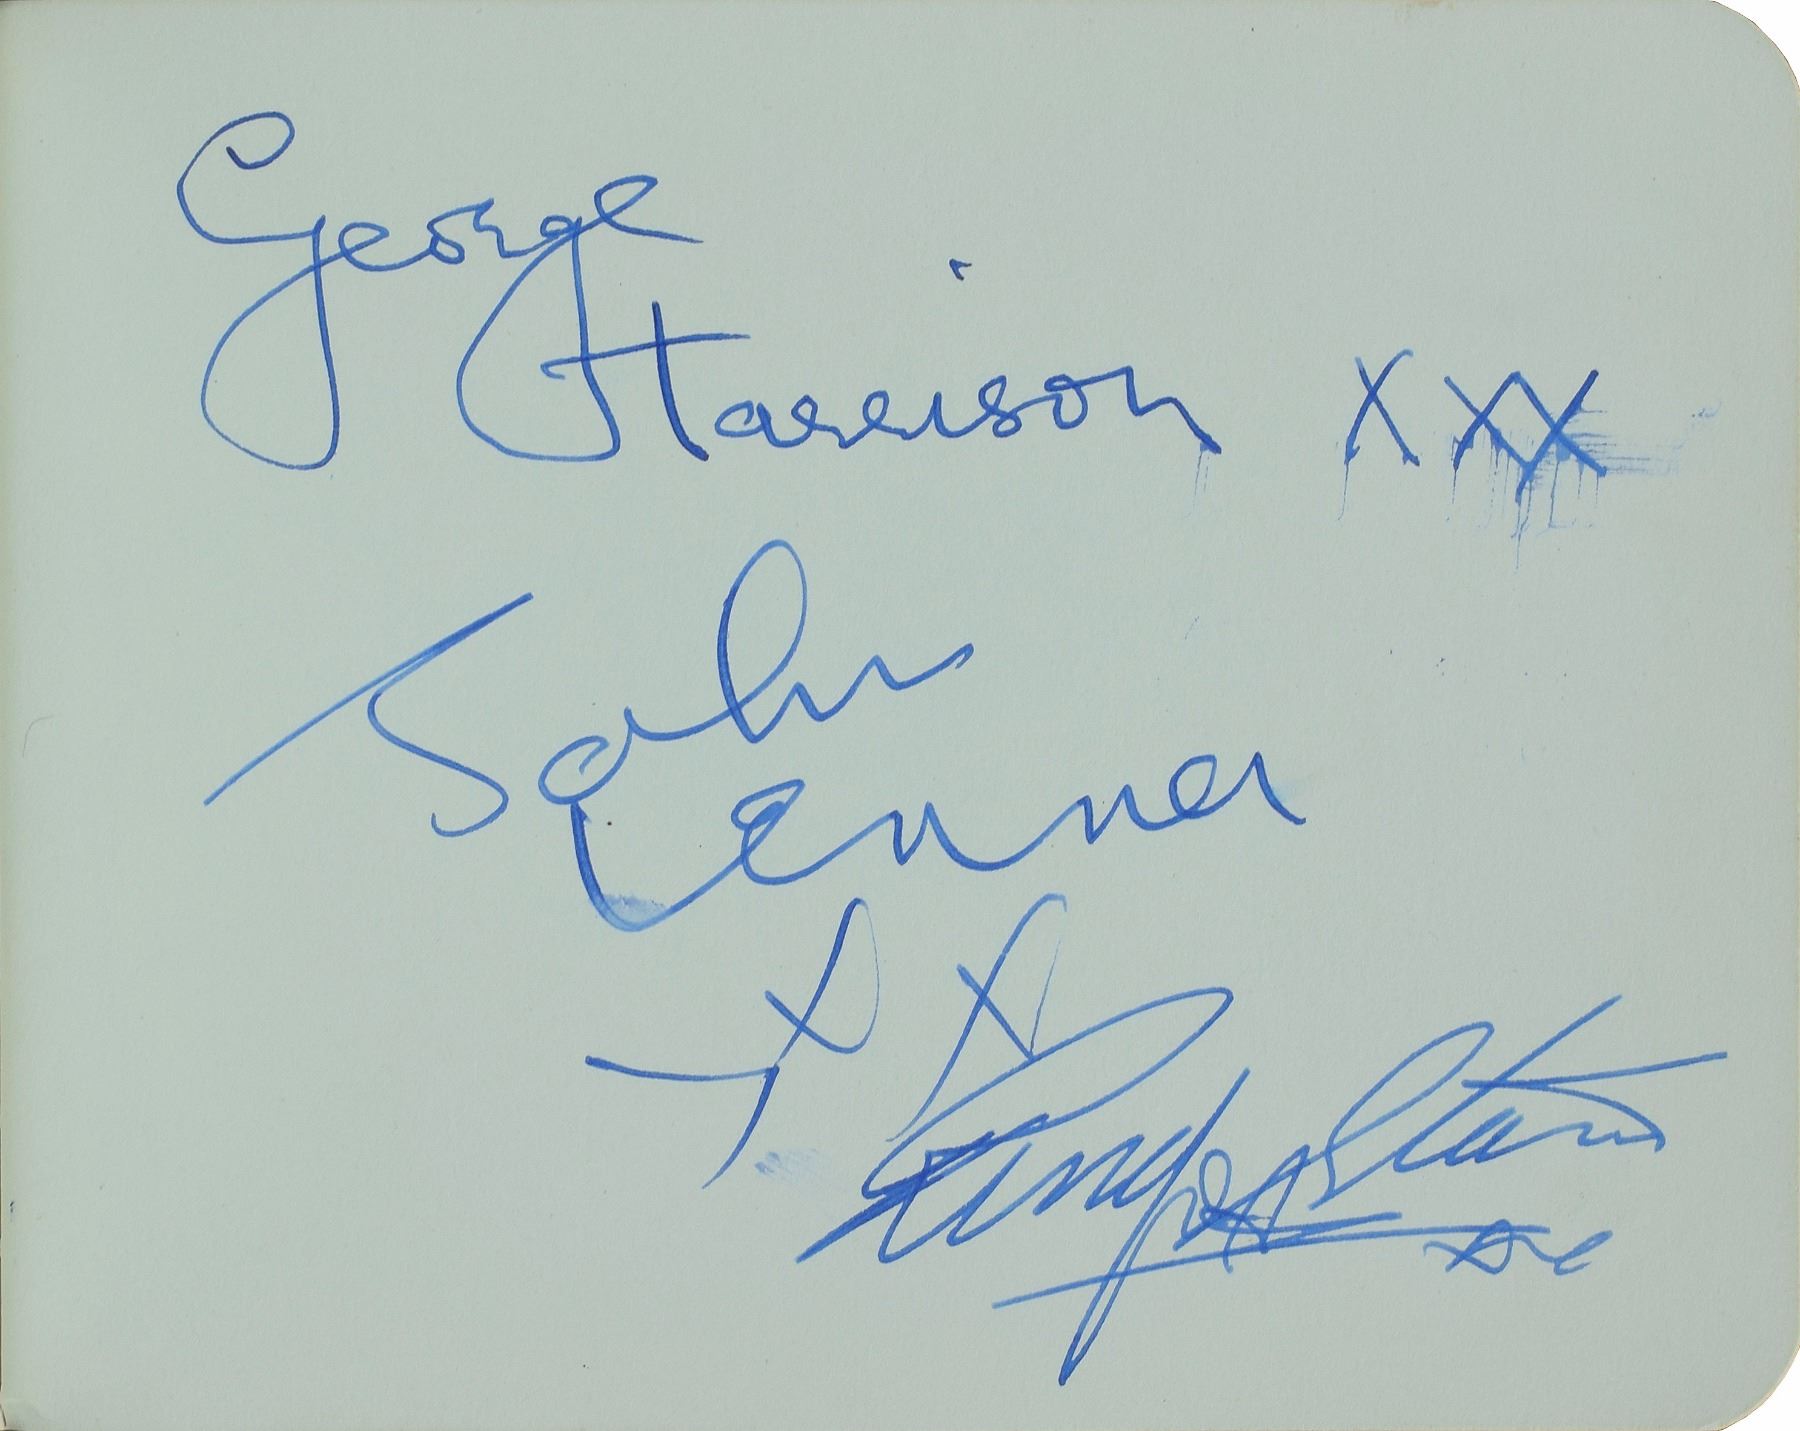 George
Harrison xxx
John
Lennon
x x
Ringo Starr
xxx